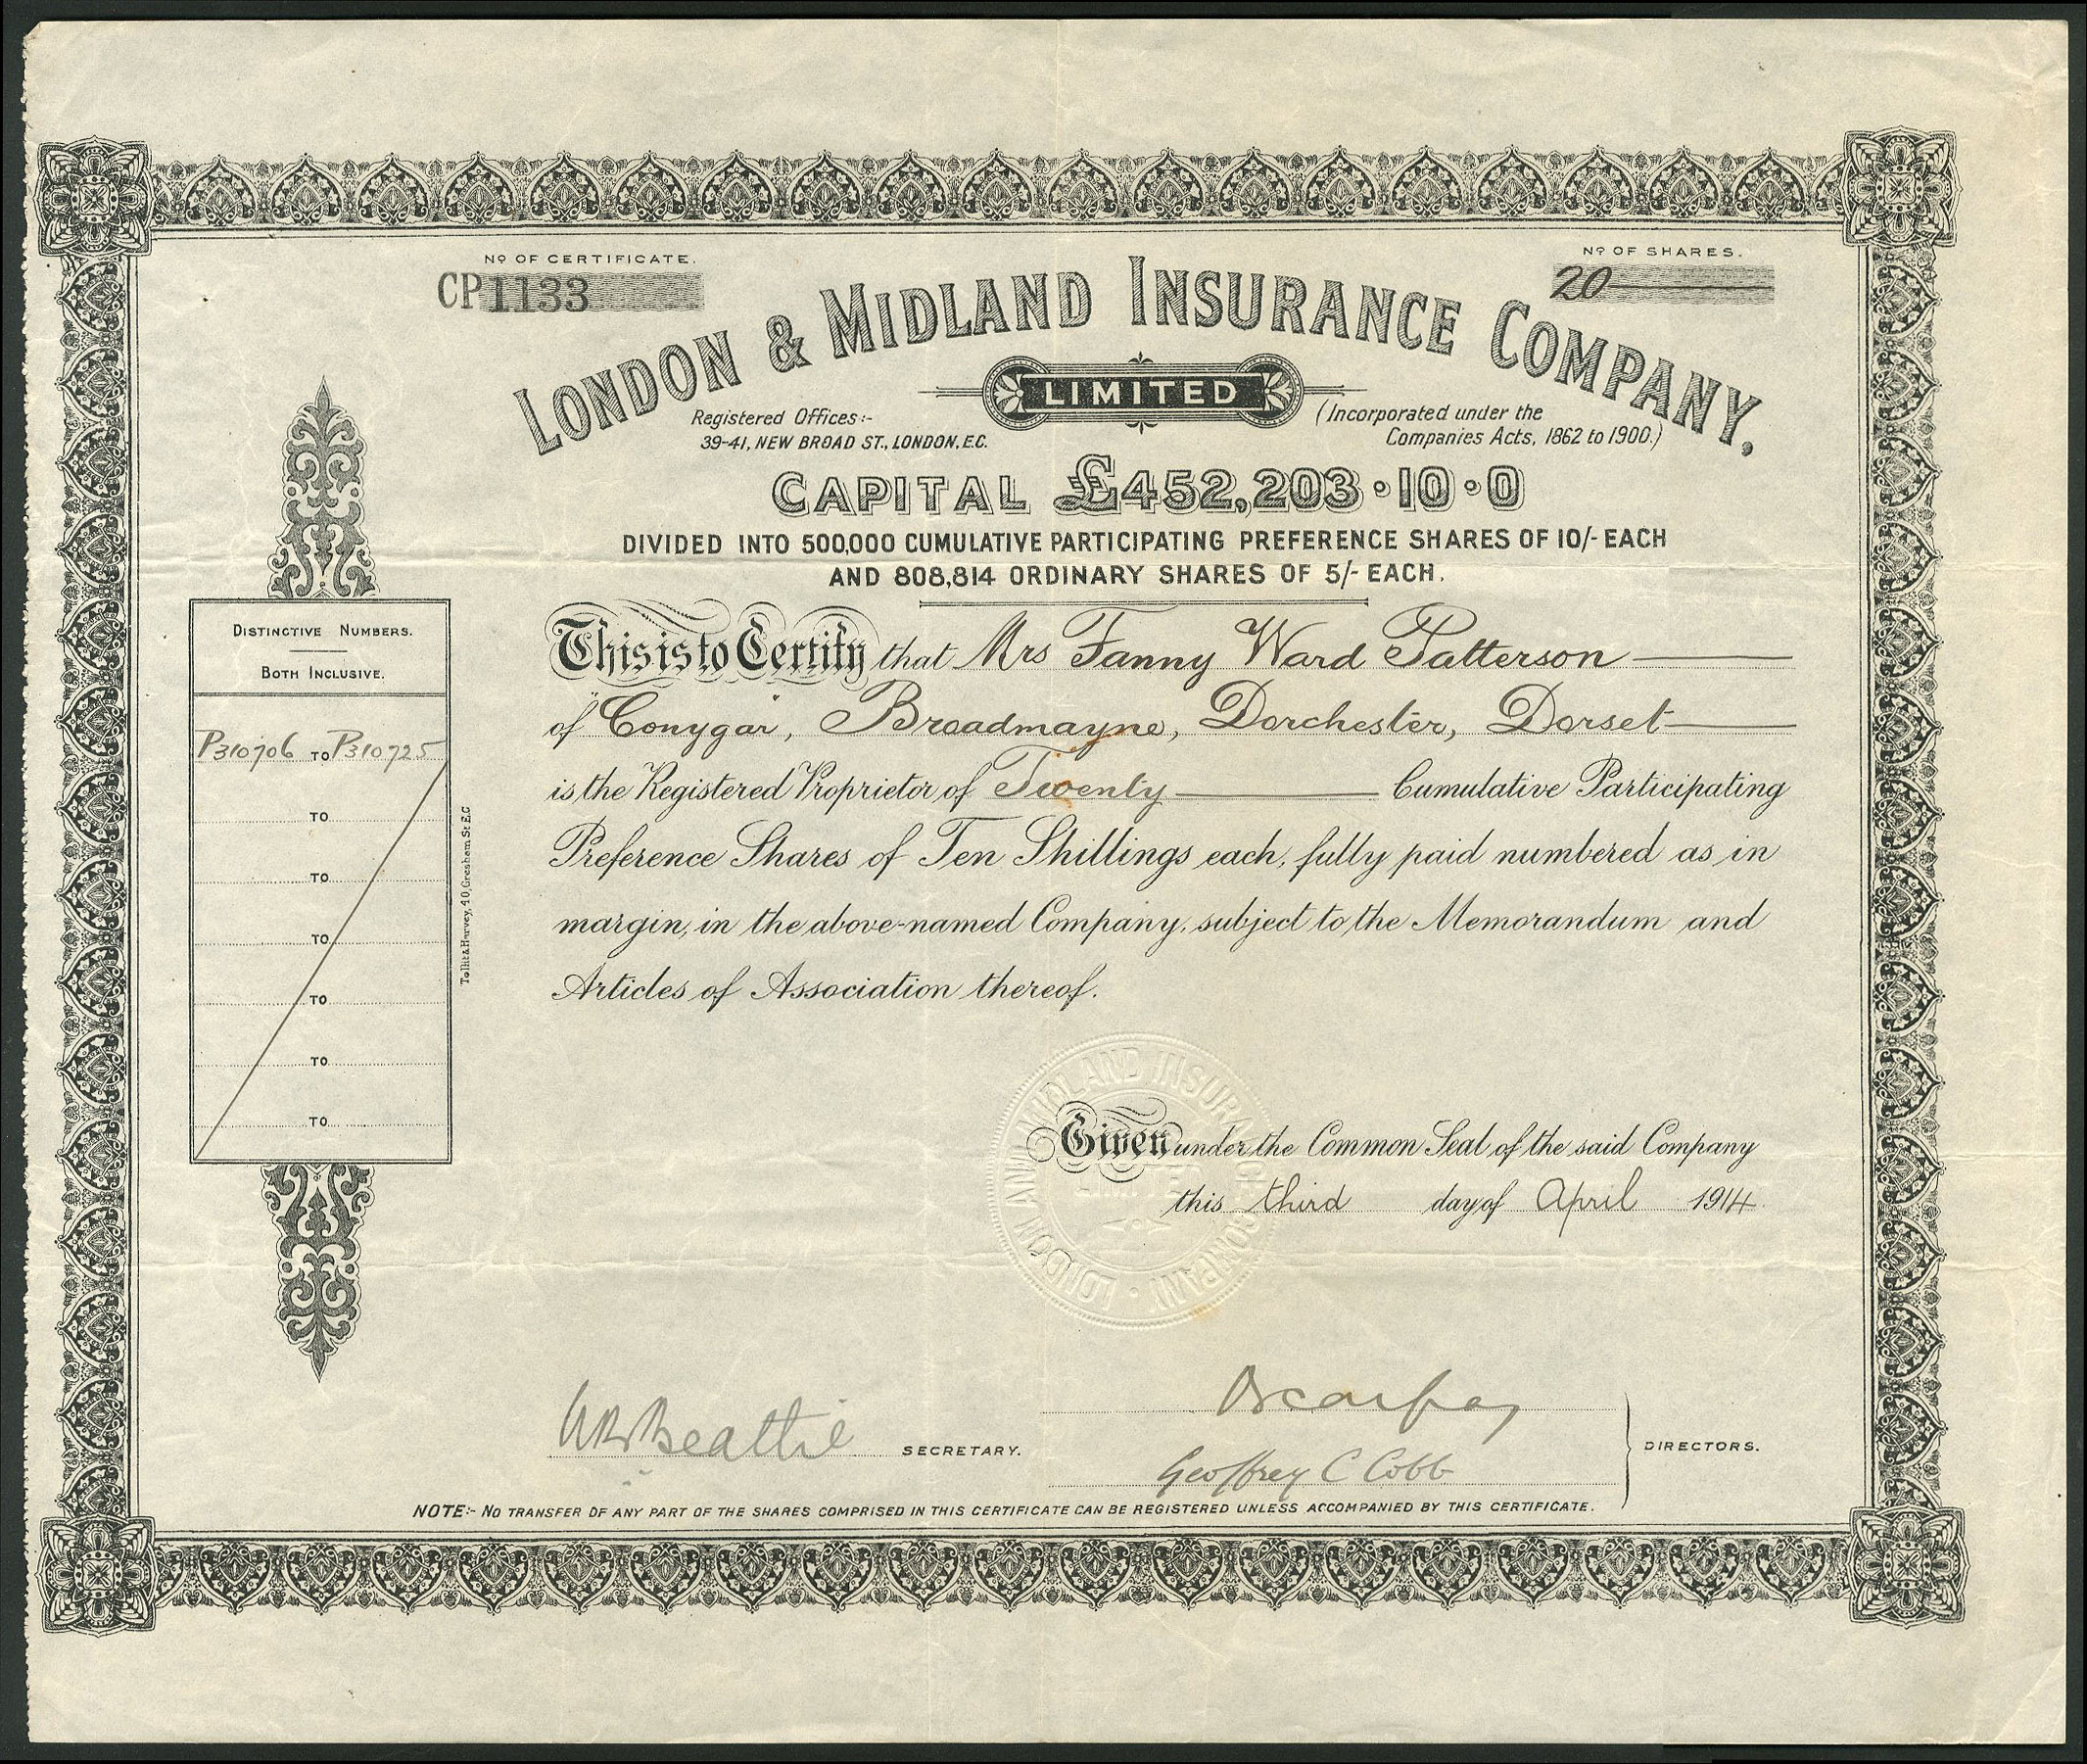 Nº OF CERTIFICATE.
CP1133
Nº OF SHARES.
20
LONDON & MIDLAND INSURANCE COMPANY,
LIMITED
Registered Offices:-
39-41, NEW BROAD ST., LONDON, E.C.
(Incorporated under the
Companies Acts, 1862 to 1900.)
CAPITAL £452,203·10·0
DIVIDED INTO 500,000 CUMULATIVE PARTICIPATING PREFERENCE SHARES OF 10/- EACH
AND 808,814 ORDINARY SHARES OF 5/- EACH.
DISTINCTIVE NUMBERS.
BOTH INCLUSIVE.
P310706 TO P310725
TO
TO
TO
TO
TO
TO
Tollit & Harvey, 40, Gresham St E.C
This is to Certify that Mrs Fanny Ward Patterson
of "Conygar, Broadmayne, Dorchester, Dorset
is the Registered Proprietor of Twenty Cumulative Participating
Preference Shares of Ten Shillings each, fully paid numbered as in
margin, in the above-named Company, subject to the Memorandum and
Articles of Association thereof.
LONDON AND MIDLAND INSURANCE COMPANY
LIMITED
Given under the Common Seal of the said Company
this third day of April 1914.
Beattie SECRETARY.
Geoffrey C Cobb
DIRECTORS.
NOTE:- NO TRANSFER OF ANY PART OF THE SHARES COMPRISED IN THIS CERTIFICATE CAN BE REGISTERED UNLESS ACCOMPANIED BY THIS CERTIFICATE.